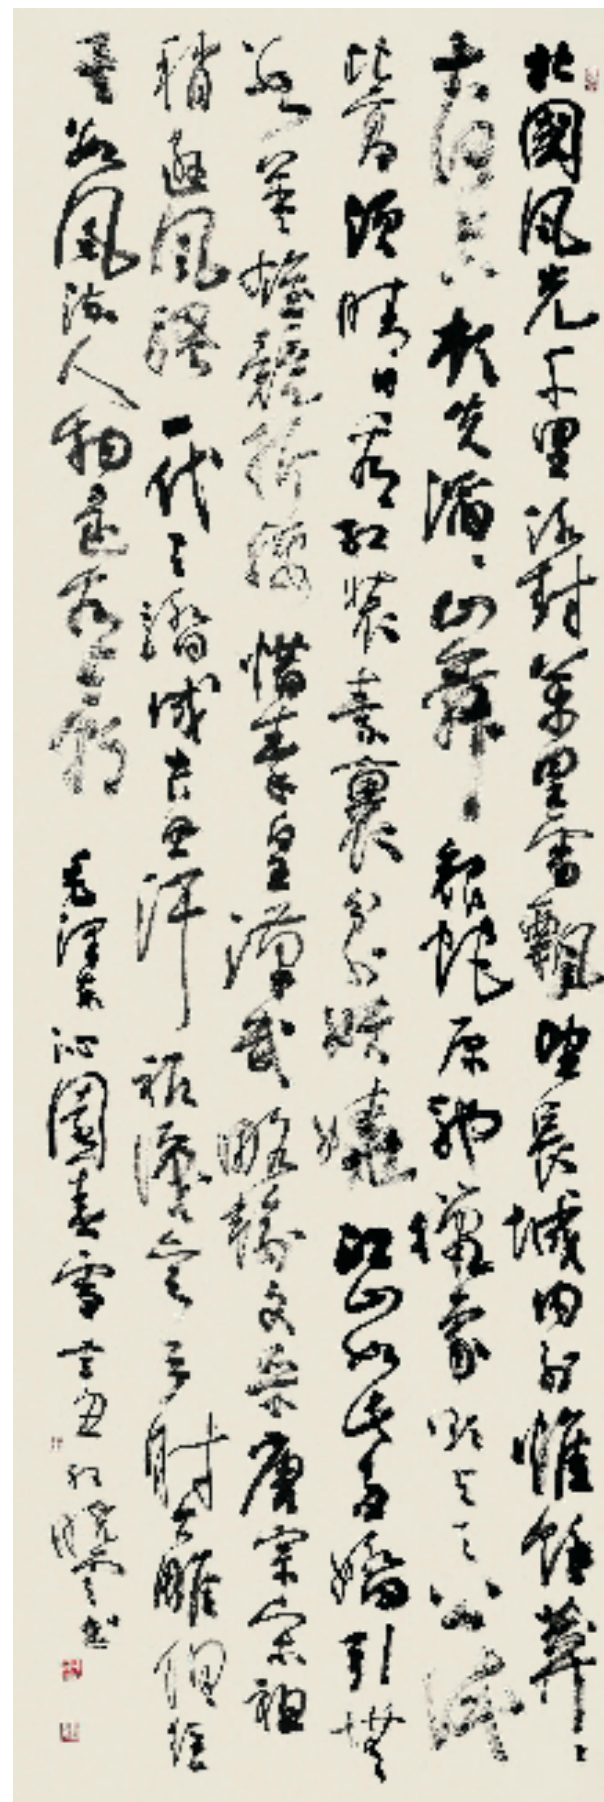 北國风光千里冰封萬里雪飄望長城内外惟餘莽々
大河上下頓失滔々山舞銀蛇原驰蠟象欲与天公試
比高須晴日看红装素裹分外妖娆江山如此多嬌引無
數英雄競折腰惜秦皇漢武略輸文采唐宗宋祖
稍逊風骚一代天骄成吉思汗祗識弯弓射大雕俱往
矣數風流人物还看今朝 毛澤东沁園春雪 辛丑 书